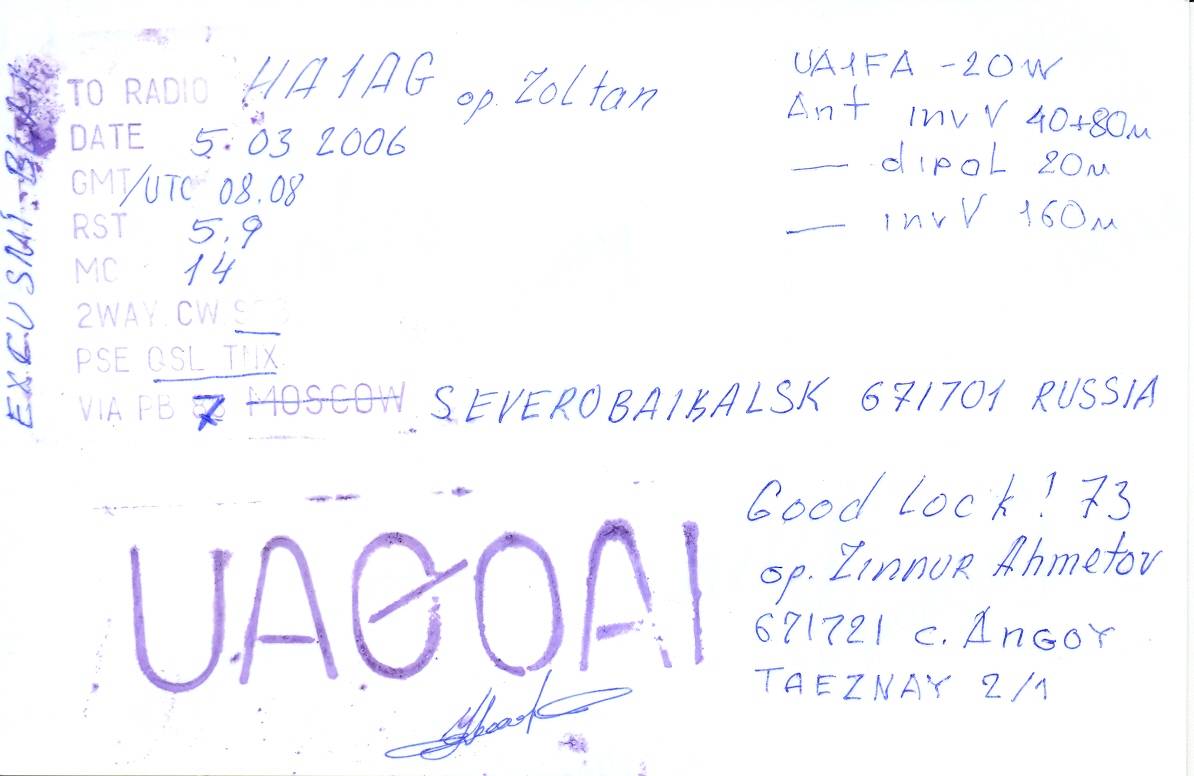 TO RADIO HA1AG op. Zoltan
DATE 5.03 2006
GMT/UTC 08.08
RST 5.9
MC 14
2WAY CW SSB
PSE QSL TNX
VIA PB 7 MOSCOW SEVEROBAIKALSK 671701 RUSSIA
EXCUSMI
UA1FA -20W
Ant inv V 40+80m
— dipol 20m
— inv V 160m
UAØOAI
Good Lock! 73
op. Zinnur Ahmetov
671721 c. Angoy
TAEZNAY 2/1